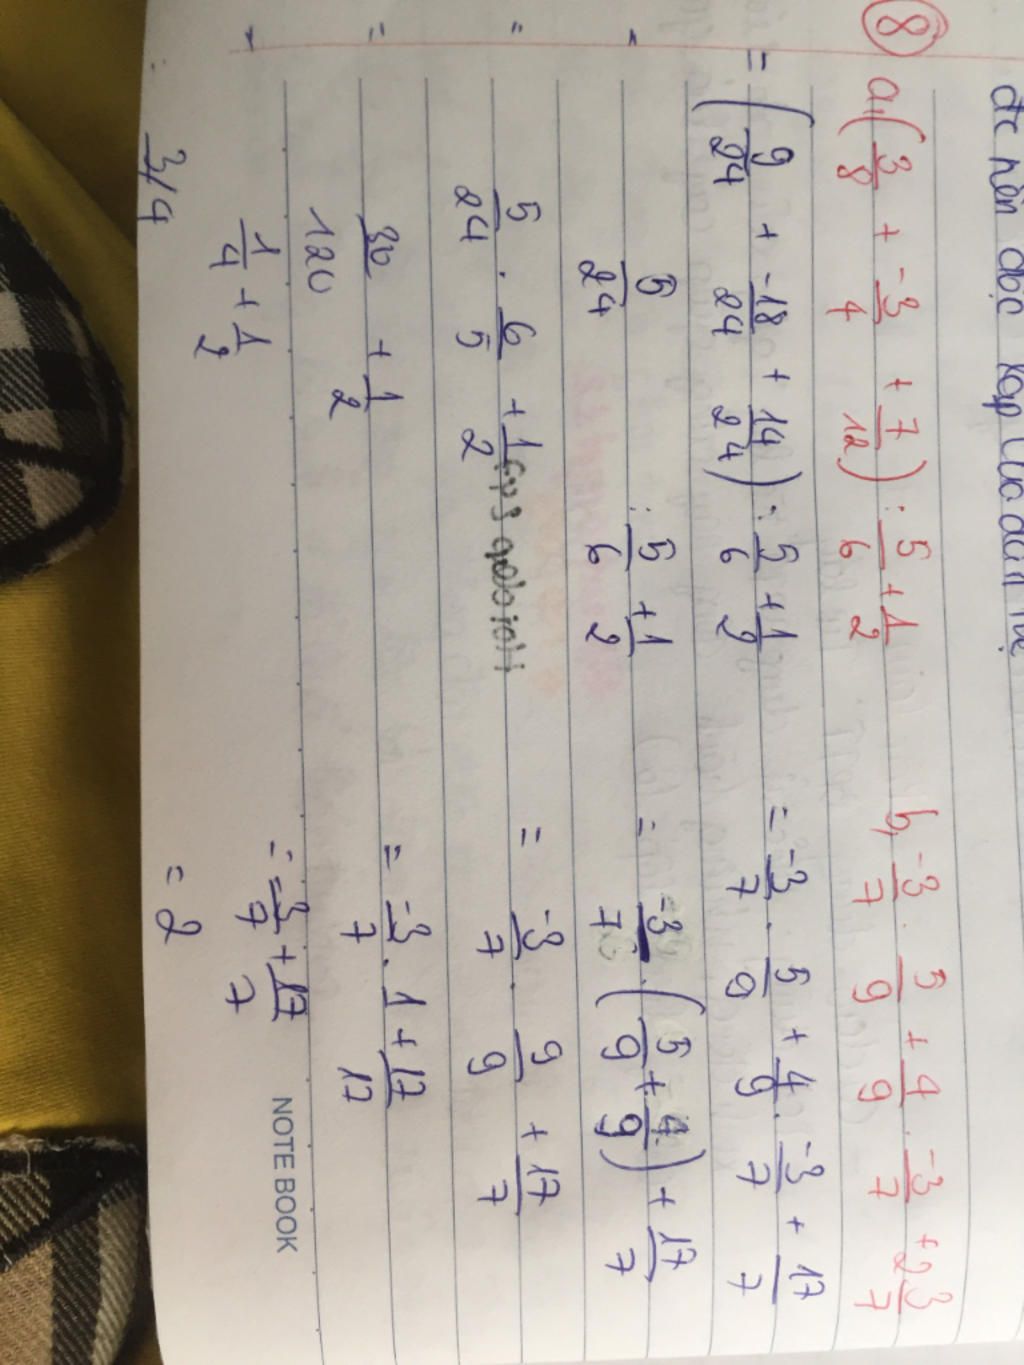 đc nên đọc
⑧ a, (3/8 + -3/4 + 7/12) : 5/6 + 1/2
= (9/24 + -18/24 + 14/24) : 5/6 + 1/2
= 5/24 : 5/6 + 1/2
= 5/24 . 6/5 + 1/2
= 30/120 + 1/2
= 1/4 + 1/2
3/4
b, -3/7 . 5/9 + 4/9 . -3/7 + 2 3/7
= -3/7 . 5/9 + 4/9 . -3/7 + 17/7
= -3/7 . (5/9 + 4/9) + 17/7
= -3/7 . 9/9 + 17/7
= -3/7 . 1 + 17/17
= -3/7 + 17/7
= 2
NOTE BOOK